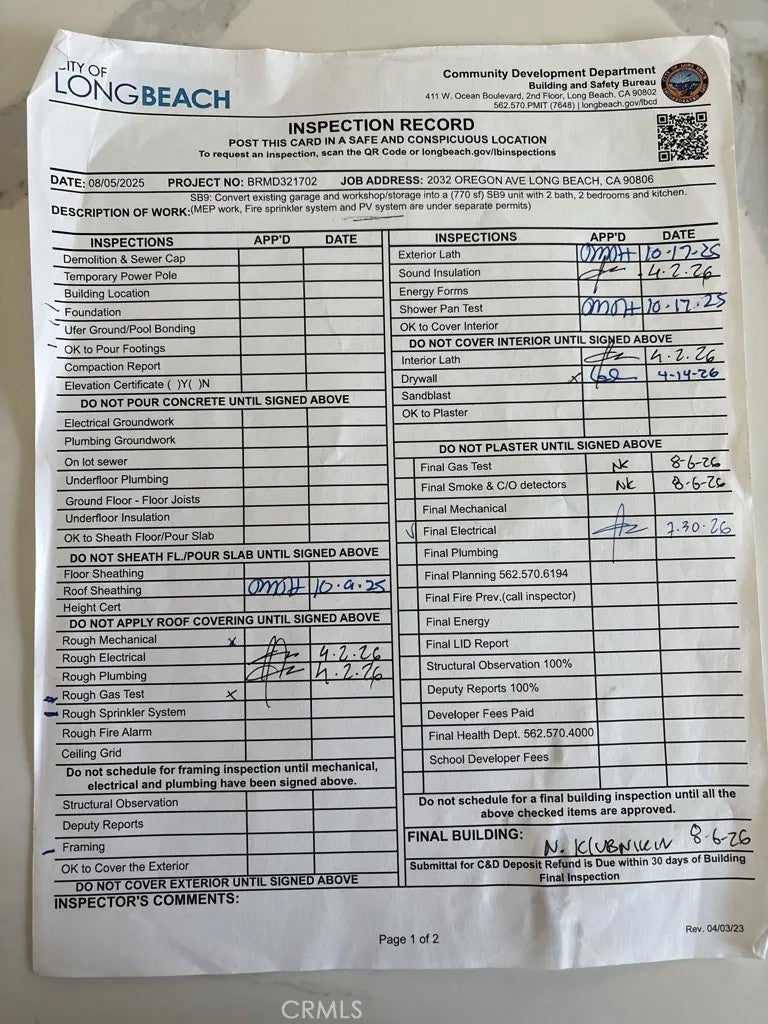 CITY OF
LONGBEACH
Community Development Department
Building and Safety Bureau
411 W. Ocean Boulevard, 2nd Floor, Long Beach, CA 90802
562.570.PMIT (7648) | longbeach.gov/lbcd
INSPECTION RECORD
POST THIS CARD IN A SAFE AND CONSPICUOUS LOCATION
To request an inspection, scan the QR Code or longbeach.gov/lbinspections
DATE: 08/05/2025 PROJECT NO: BRMD321702 JOB ADDRESS: 2032 OREGON AVE LONG BEACH, CA 90806
SB9: Convert existing garage and workshop/storage into a (770 sf) SB9 unit with 2 bath, 2 bedrooms and kitchen.
DESCRIPTION OF WORK: (MEP work, Fire sprinkler system and PV system are under separate permits)
INSPECTIONS APP'D DATE
Demolition & Sewer Cap
Temporary Power Pole
Building Location
Foundation
Ufer Ground/Pool Bonding
OK to Pour Footings
Compaction Report
Elevation Certificate ( )Y( )N
DO NOT POUR CONCRETE UNTIL SIGNED ABOVE
Electrical Groundwork
Plumbing Groundwork
On lot sewer
Underfloor Plumbing
Ground Floor - Floor Joists
Underfloor Insulation
OK to Sheath Floor/Pour Slab
DO NOT SHEATH FL./POUR SLAB UNTIL SIGNED ABOVE
Floor Sheathing
Roof Sheathing 10-9-25
Height Cert
DO NOT APPLY ROOF COVERING UNTIL SIGNED ABOVE
Rough Mechanical x
Rough Electrical 4.2.26
Rough Plumbing 4.2.26
Rough Gas Test x
Rough Sprinkler System
Rough Fire Alarm
Ceiling Grid
Do not schedule for framing inspection until mechanical,
electrical and plumbing have been signed above.
Structural Observation
Deputy Reports
Framing
OK to Cover the Exterior
DO NOT COVER EXTERIOR UNTIL SIGNED ABOVE
INSPECTOR'S COMMENTS:
INSPECTIONS APP'D DATE
Exterior Lath 10-17-25
Sound Insulation 4.2.26
Energy Forms
Shower Pan Test 10-17-25
OK to Cover Interior
DO NOT COVER INTERIOR UNTIL SIGNED ABOVE
Interior Lath 4.2.26
Drywall x 4-14-26
Sandblast
OK to Plaster
DO NOT PLASTER UNTIL SIGNED ABOVE
Final Gas Test NK 8-6-26
Final Smoke & C/O detectors NK 8-6-26
Final Mechanical
Final Electrical 7.30.26
Final Plumbing
Final Planning 562.570.6194
Final Fire Prev.(call inspector)
Final Energy
Final LID Report
Structural Observation 100%
Deputy Reports 100%
Developer Fees Paid
Final Health Dept. 562.570.4000
School Developer Fees
Do not schedule for a final building inspection until all the
above checked items are approved.
FINAL BUILDING: N. KLUBNIKIN 8-6-26
Submittal for C&D Deposit Refund is Due within 30 days of Building
Final Inspection
Page 1 of 2
Rev. 04/03/23
CRMLS